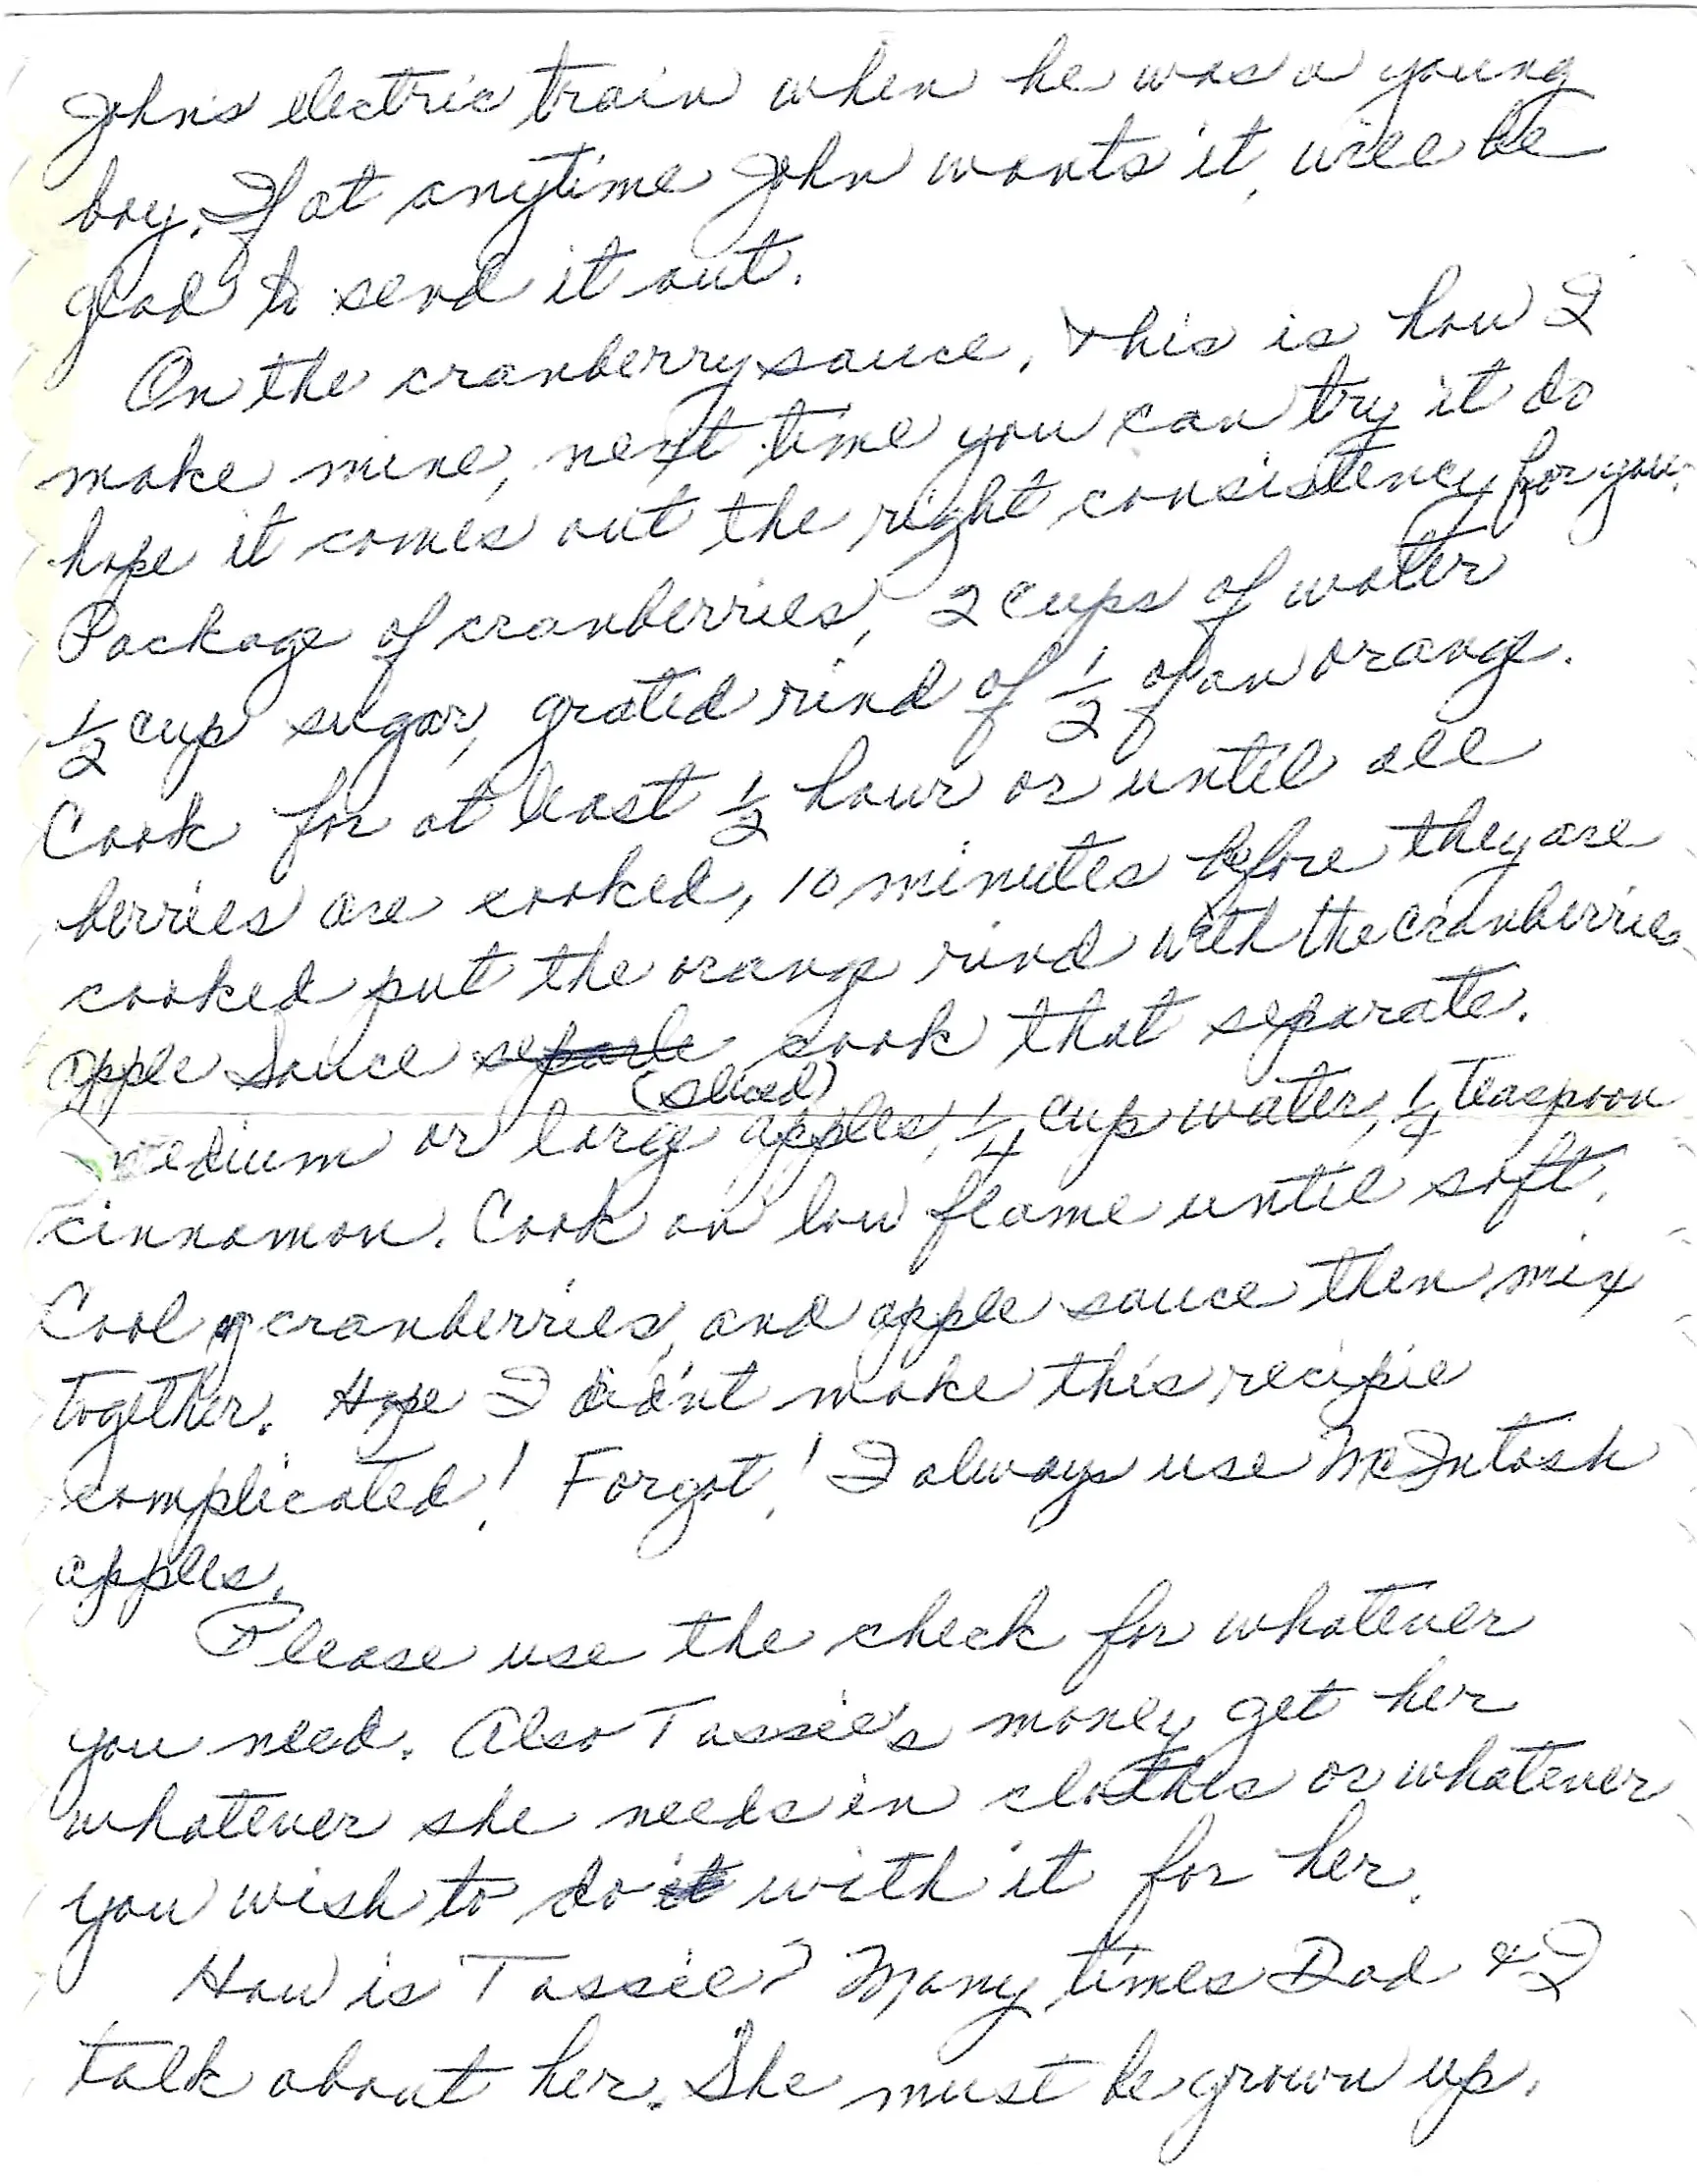 John's electric train when he was a young
boy. If at anytime John wants it, will be
glad to send it out.
On the cranberry sauce, this is how I
make mine, next time you can try it do
hope it comes out the right consistency for you.
Package of cranberries, 2 cups of water
1/2 cup sugar, grated rind of 1/2 of an orange.
Cook for at least 1/2 hour or until all
berries are cooked, 10 minutes before they are
cooked put the orange rind with the cranberries
apple sauce cook that separate.
(sliced)
medium or large apples, 1/4 cup water, 1/4 teaspoon
cinnamon. Cook on low flame until soft.
Cool cranberries, and apple sauce then mix
together. Hope I didn't make this recipie
complicated! Forgot! I always use McIntosh
apples.
Please use the check for whatever
you need. Also Tassie's money get her
whatever she needs in clothes or whatever
you wish to do with it for her.
How is Tassie? Many times Dad & I
talk about her. She must be grown up.